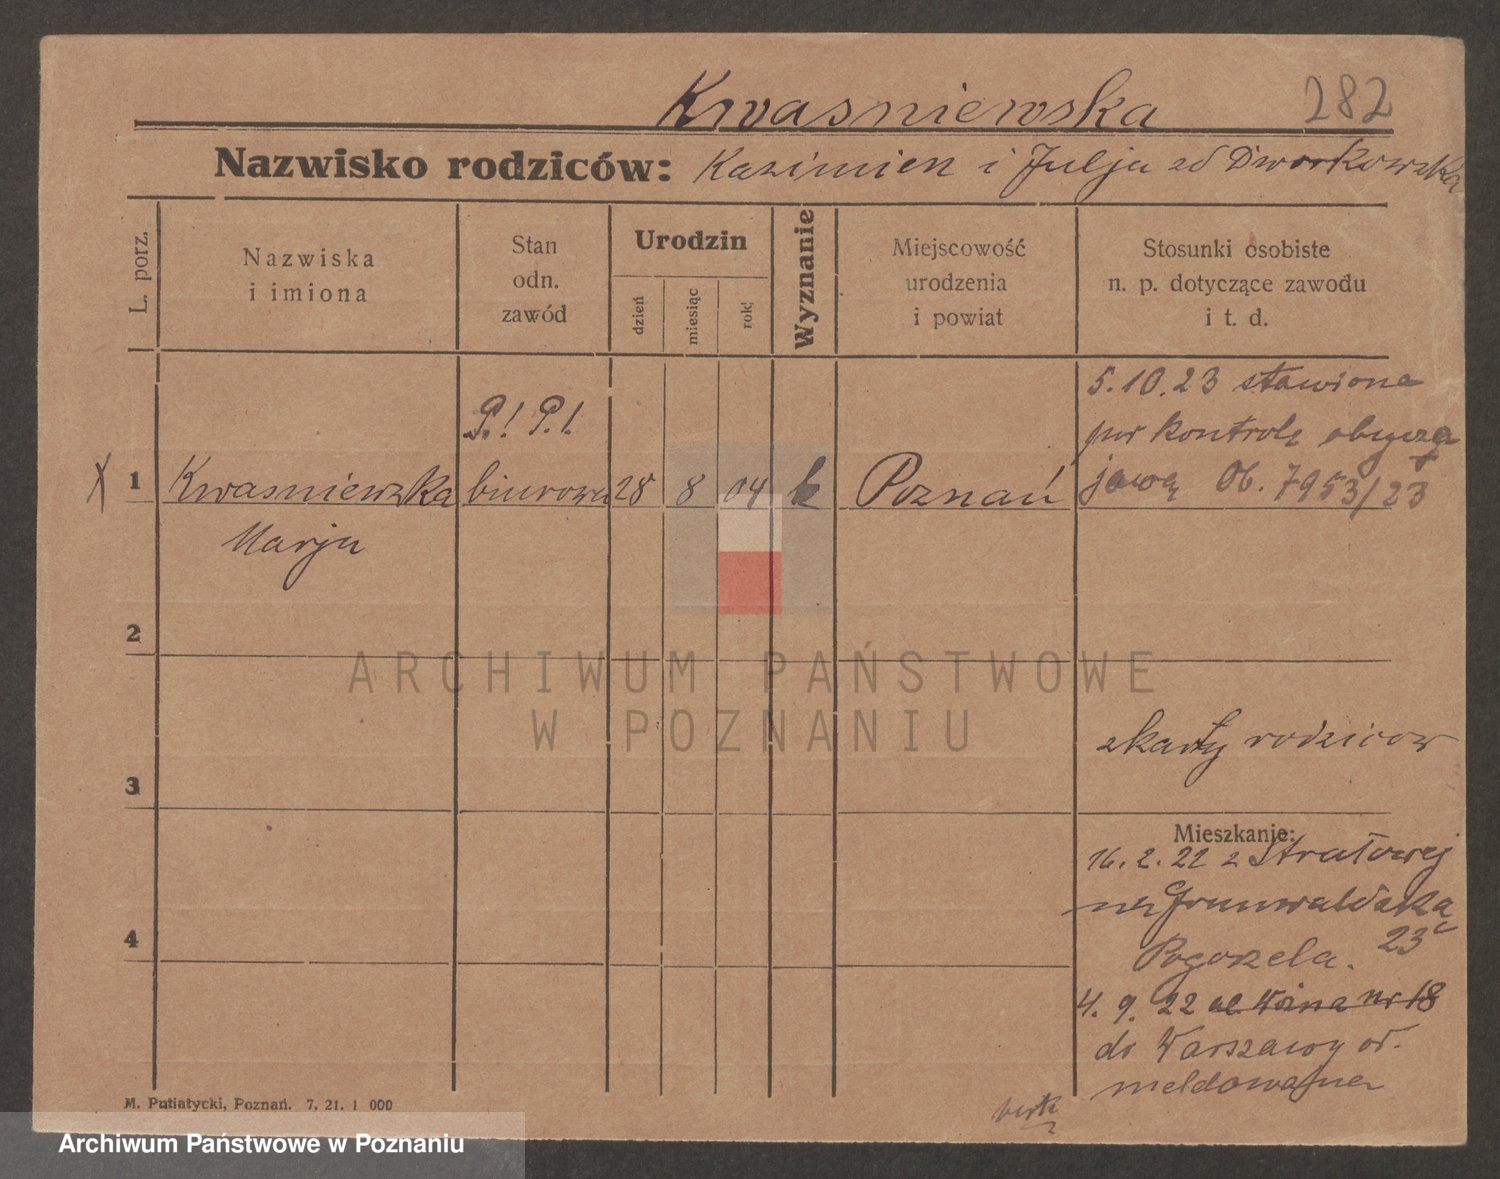 Kwasniewska 282
Nazwisko rodziców: Kazimierz i Julja zd Dworkowska
L. porz.
Nazwiska
i imiona
Stan
odn.
zawód
Urodzin
dzień
miesiąc
rok
Wyznanie
Miejscowość
urodzenia
i powiat
Stosunki osobiste
n. p. dotyczące zawodu
i t. d.
P.! P.!
5.10.23 stawiona
pod kontrolę obycza
X 1 Kwasniewska biurowa 28 8 04 k Poznań jową Ob. 7953/23
Marja
2
zkarty rodzicow
3
Mieszkanie:
16. 2. 22 z Strałowej
na Grunwaldska
4 23
Pogorzela.
4. 9. 22 Wozna nr 18
do Warszawy od.
meldowana
M. Putiatycki, Poznań. 7. 21. 1 000
ARCHIWUM PAŃSTWOWE
W POZNANIU
Archiwum Państwowe w Poznaniu